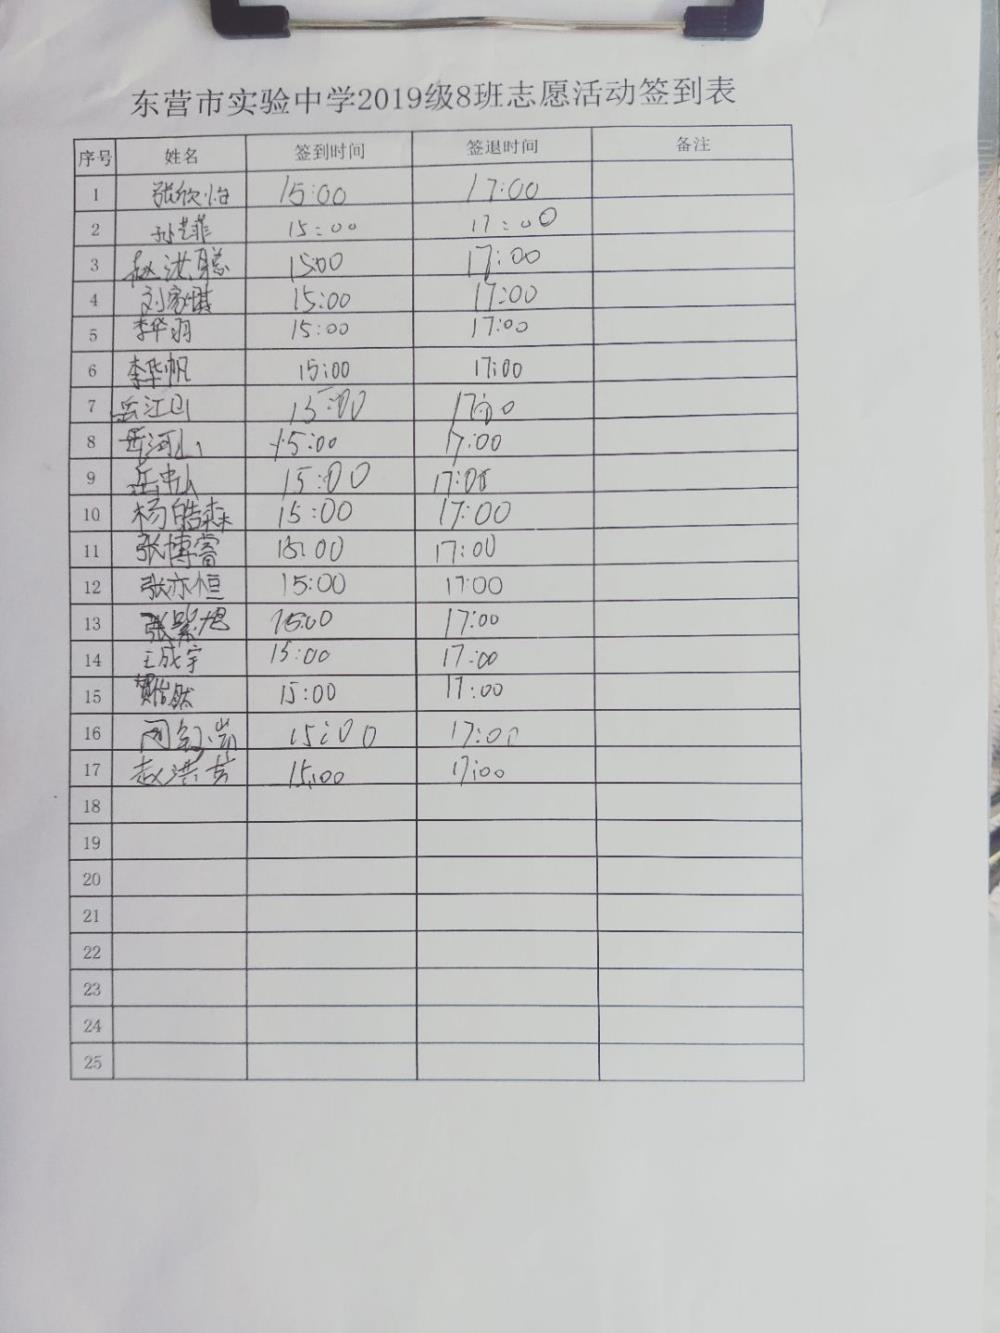 东营市实验中学2019级8班志愿活动签到表
序号 姓名 签到时间 签退时间 备注
1 张欣怡 15:00 17:00
2 孙艺菲 15:00 17:00
3 赵洪聪 15:00 17:00
4 刘家琪 15:00 17:00
5 李华羽 15:00 17:00
6 李华帆 15:00 17:00
7 岳江山 15:00 17:00
8 岳河山 15:00 17:00
9 岳中山 15:00 17:00
10 杨皓森 15:00 17:00
11 张博睿 15:00 17:00
12 张亦恒 15:00 17:00
13 张 15:00 17:00
14 王成宇 15:00 17:00
15 15:00 17:00
16 15:00 17:00
17 赵洪 15:00 17:00
18
19
20
21
22
23
24
25